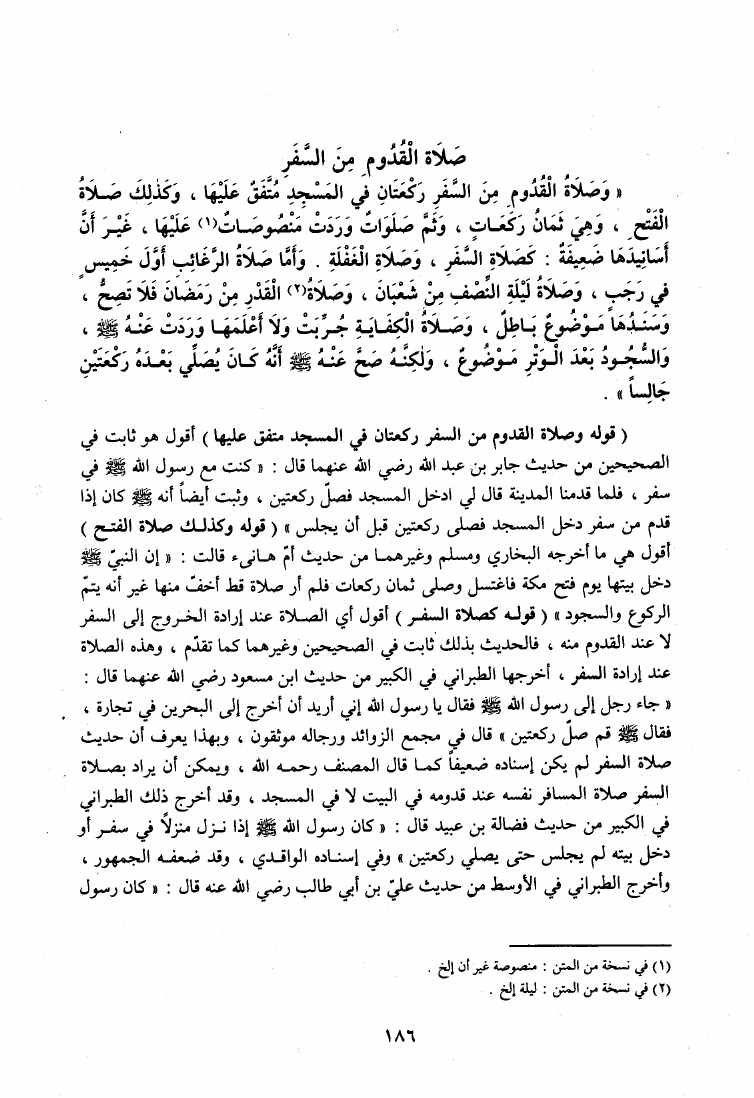 صَلَاة الْقُدُومِ مِنَ السَّفَرِ
« وَصَلَاةُ الْقُدُومِ مِنَ السَّفَرِ رَكْعَتَانِ في المَسْجِدِ مُتَّفَقٌ عَلَيْهَا ، وَكَذٰلِكَ صَلَاةُ
الْفَتْحِ ، وَهِيَ ثَمَانُ رَكَعَاتٍ ، وَثَمَّ صَلَوَاتٌ وَرَدَتْ مَنْصُوصَاتٌ(١) عَلَيْهَا ، غَيْرَ أَنَّ
أَسَانِيدَهَا ضَعِيفَةٌ : كَصَلَاةِ السَّفَرِ ، وَصَلَاةِ الْغَفْلَةِ . وَأَمَّا صَلَاةُ الرَّغَائِبِ أَوَّلَ خَمِيسٍ
في رَجَبٍ ، وَصَلَاةُ لَيْلَةِ النِّصْفِ مِنْ شَعْبَانَ ، وَصَلَاةُ(٢) الْقَدْرِ مِنْ رَمَضَانَ فَلَا تَصِحُّ ،
وَسَنَدُهَا مَوْضُوعٌ بَاطِلٌ ، وَصَلَاةُ الْكِفَايَةِ جُرِّبَتْ وَلَا أَعْلَمُهَا وَرَدَتْ عَنْهُ ﷺ ،
وَالسُّجُودُ بَعْدَ الْوَتْرِ مَوْضُوعٌ ، وَلٰكِنَّهُ صَحَّ عَنْهُ ﷺ أَنَّهُ كَانَ يُصَلِّي بَعْدَهُ رَكْعَتَيْنِ
جَالِساً » .
( قوله وصلاة القدوم من السفر ركعتان في المسجد متفق عليها ) أقول هو ثابت في
الصحيحين من حديث جابر بن عبد الله رضي الله عنهما قال : « كنت مع رسول الله ﷺ في
سفر ، فلما قدمنا المدينة قال لي ادخل المسجد فصلّ ركعتين ، وثبت أيضاً أنه ﷺ كان إذا
قدم من سفر دخل المسجد فصلى ركعتين قبل أن يجلس » ( قوله وكذلك صلاة الفتح )
أقول هي ما أخرجه البخاري ومسلم وغيرهما من حديث أمّ هانىء قالت : « إن النبيّ ﷺ
دخل بيتها يوم فتح مكة فاغتسل وصلى ثمان ركعات فلم أر صلاة قط أخفّ منها غير أنه يتمّ
الركوع والسجود » ( قوله كصلاة السفر ) أقول أي الصلاة عند إرادة الخروج إلى السفر
لا عند القدوم منه ، فالحديث بذلك ثابت في الصحيحين وغيرهما كما تقدّم ، وهذه الصلاة
عند إرادة السفر ، أخرجها الطبراني في الكبير من حديث ابن مسعود رضي الله عنهما قال :
« جاء رجل إلى رسول الله ﷺ فقال يا رسول الله إني أريد أن أخرج إلى البحرين في تجارة ،
فقال ﷺ قم صلّ ركعتين » قال في مجمع الزوائد ورجاله موثقون ، وبهذا يعرف أن حديث
صلاة السفر لم يكن إسناده ضعيفاً كما قال المصنف رحمه الله ، ويمكن أن يراد بصلاة
السفر صلاة المسافر نفسه عند قدومه في البيت لا في المسجد ، وقد أخرج ذلك الطبراني
في الكبير من حديث فضالة بن عبيد قال : « كان رسول الله ﷺ إذا نزل منزلاً في سفر أو
دخل بيته لم يجلس حتى يصلي ركعتين » وفي إسناده الواقدي ، وقد ضعفه الجمهور ،
وأخرج الطبراني في الأوسط من حديث عليّ بن أبي طالب رضي الله عنه قال : « كان رسول
(١) في نسخة من المتن : منصوصة غير أن إلخ .
(٢) في نسخة من المتن : ليلة إلخ .
١٨٦